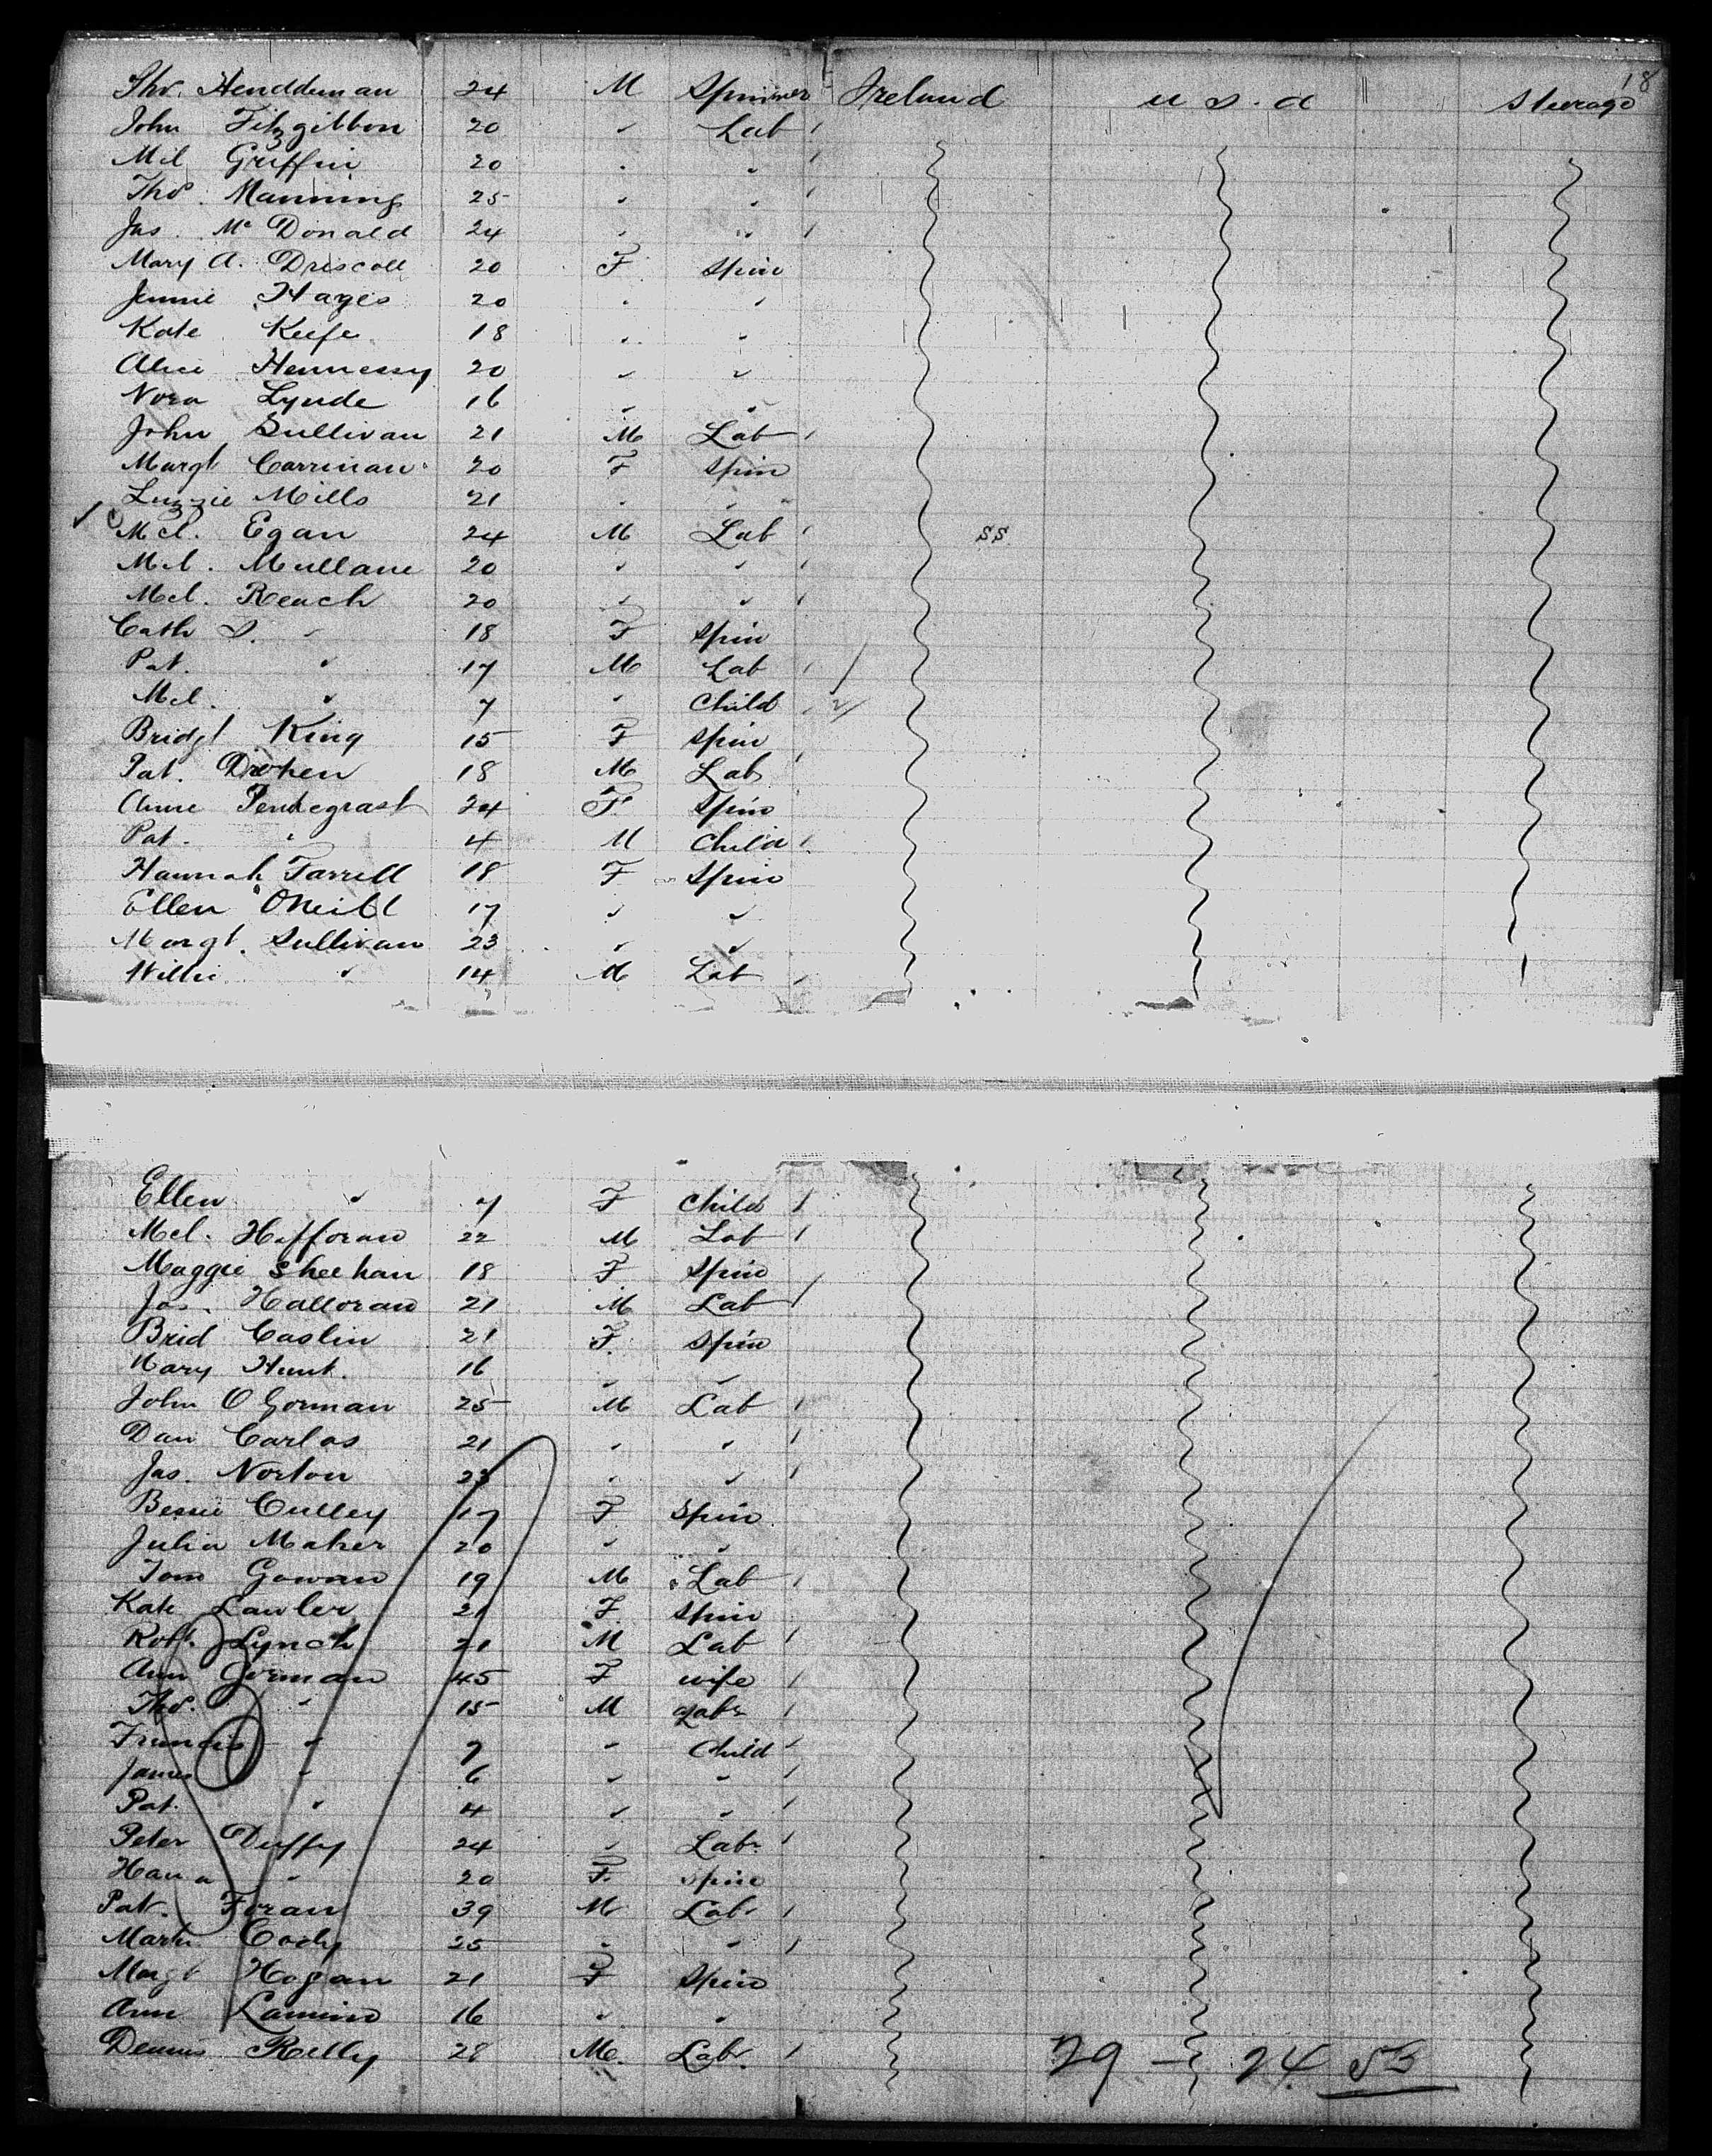 18
Thos. Hendderman 24 M Spinner Ireland U S. a Steerage
John Fitzgibbon 20 " Lab
Mil Griffin 20 " "
Thos. Manning 25 " "
Jas. Mc Donald 24 " "
Mary A. Driscoll 20 F Spin
Jennie Hayes 20 " "
Kate Keefe 18 " "
Alice Hennessy 20 " "
Nora Lynde 16 " "
John Sullivan 21 M Lab
Margt Carrinan 20 F Spin
Lizzie Mills 21 " "
Mcl. Egan 24 M Lab SS
Mcl. Mullane 20 " "
Mcl. Reach 20 " "
Cath S. " 18 F Spin
Pat. " 17 M Lab
Mcl. " 7 " Child
Bridgt King 15 F Spin
Pat. Drohen 18 M Lab
Anne Pendegrast 24 F. Spin
Pat. " 4 M Child
Hannah Farrell 18 F Spin
Ellen ONeill 17 " "
Margt. Sullivan 23 " "
Willie " 14 M Lab
Ellen " 7 F Child
Mcl. Hefforan 22 M Lab
Maggie Sheehan 18 F Spin
Jas. Halloran 21 M Lab
Brid Caslin 21 F. Spin
Mary Hunt. 16 " "
John O Gorman 25 M Lab
Dan Carlos 21 " "
Jas. Norton 23 " "
Bessie Culley 17 F Spin
Julia Maher 20 " "
Tom Gowan 19 M Lab
Kate Lawler 21 F Spin
Robt. Lynch 21 M Lab
Ann Gorman 45 F wife
Thos. " 15 M Labr
Francis " 7 " Child
James " 6 " "
Pat. " 4 " "
Peter Duffy 24 " Labr
Hana " 20 F. Spin
Pat. Foran 39 M Labr
Martn Cody 25 " "
Margt Hogan 21 F Spin
Ann 16 " "
Dennis Reilly 28 M. Labr.
29 – 24 53